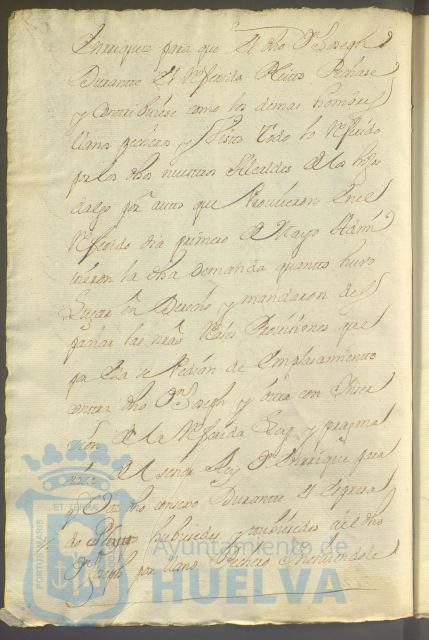 Enrriquez para que el dho Dn Joseph
Durante el Referido Pleito Pechase
y Contribuiese como los demas hombres
llanos pecheros y Visto todo lo Referido
por los dhos nuestros Alcaldes de los hijos
dalgo por auto que Proveieron en el
Referido dia primero de Mayo Admi
tieron la dha Demanda quanto huvo
Lugar en Derecho y mandaron des
pachar las nras Reales Provisiones que
por ella se Pedian de Emplasamiento
contra dho Dn Joseph y otra con Inser
cion de la Referida Ley y pragma
tica del señor Rey Dn Enrrique para
y Dho consejo Durante el expresa
do Pleyto hubiesedes y tubiesedes a el dho
Dn Joseph por llano Pechero
PORTUS MARIS
ET TERRAE
Ayuntamiento de
HUELVA